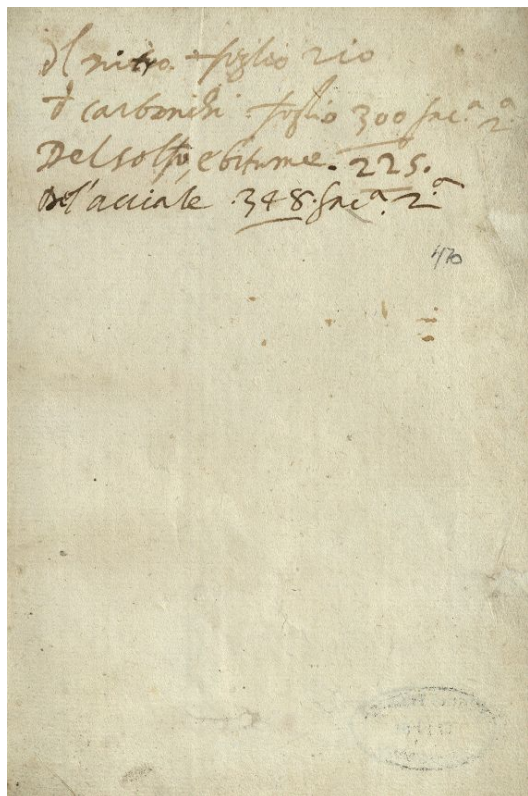 Il nitro. foglio 210
i carbonchi. foglio 300 facᵃ. 2ᵃ.
Del solfo, e bitume. 225.
Del'acciale .348. facᵃ. 2ᵃ.
470